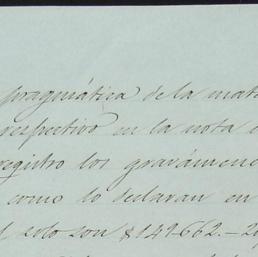 pragmática de la mat
respectivo en la nota
registro los gravámene
como lo declaran en
solo son $149.662.-2